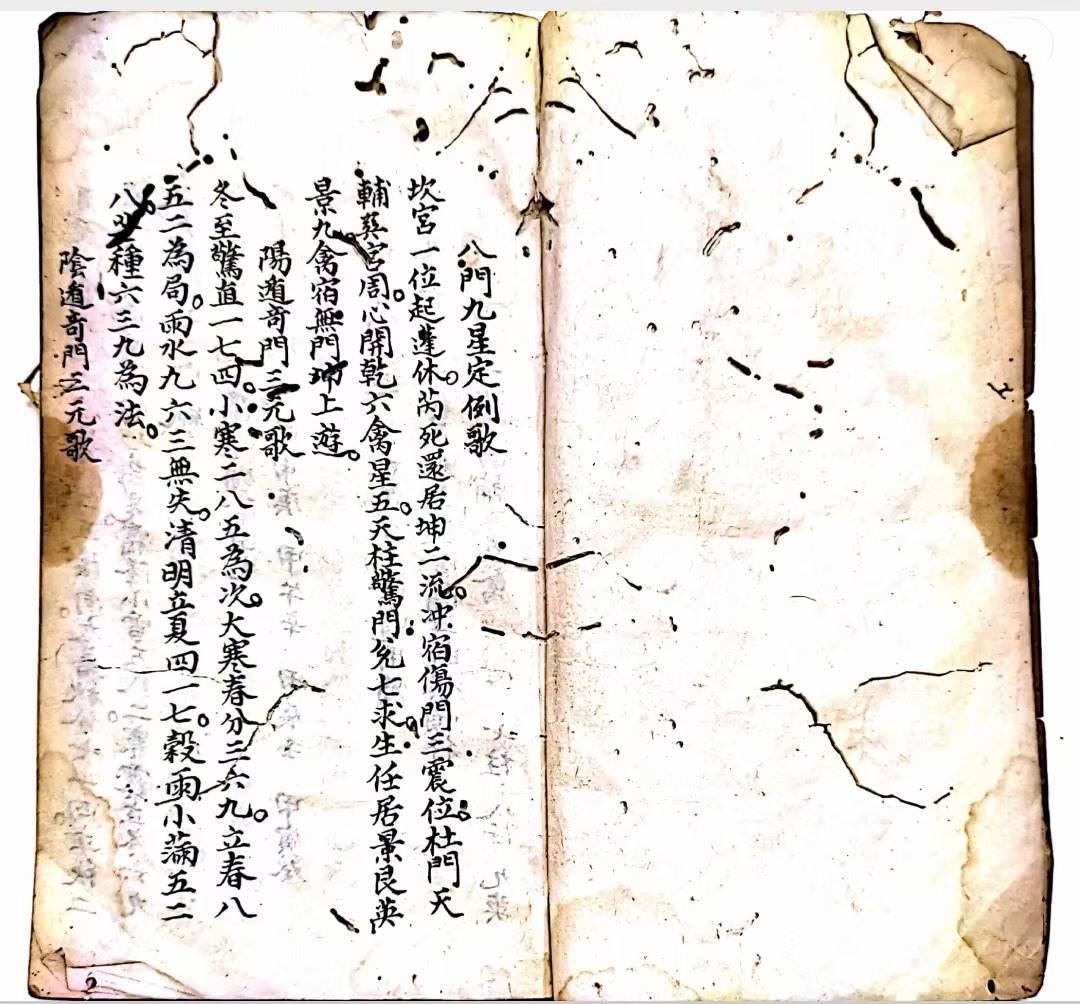 八門九星定例歌
坎宮一位起蓬休。芮死還居坤二流。冲宿傷門三震位。杜門天
輔巽宮周。心開乾六禽星五。天柱驚門兌七求。生任居景艮英
景九禽宿無門坤上遊。
陽遁奇門三元歌
冬至驚直一七四。小寒二八五為次。大寒春分三六九。立春八
五二為局。雨水九六三無失。清明立夏四一七。穀雨小滿五二
八。種六三九為法。
陰遁奇門三元歌
2